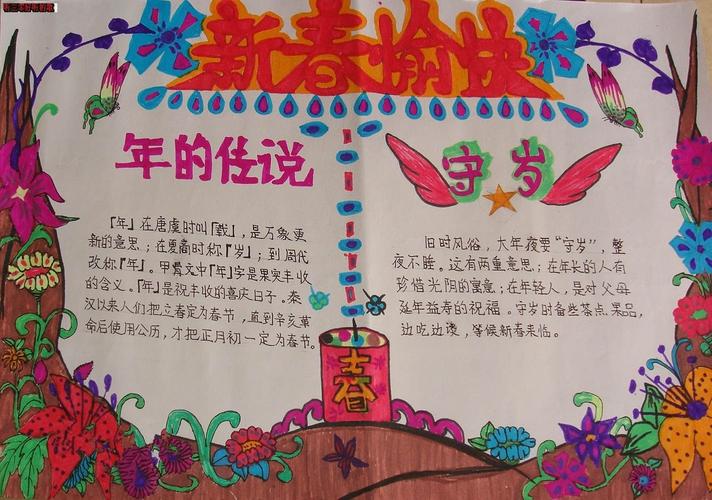 新春愉快
年的传说
『年』在唐虞时叫『载』，是万象更
新的意思；在夏商时称『岁』；到周代
改称『年』。甲骨文中『年』字是果实丰收
的含义。『年』是祝丰收的喜庆日子。秦
汉以来人们把立春定为春节，直到辛亥革
命后使用公历，才把正月初一定为春节。
守岁
旧时风俗，大年夜要“守岁”，整
夜不睡。这有两重意思；在年长的人有
珍惜光阴的寓意；在年轻人，是对父母
延年益寿的祝福。守岁时备些茶点果品，
边吃边谈，等候新春来临。
春